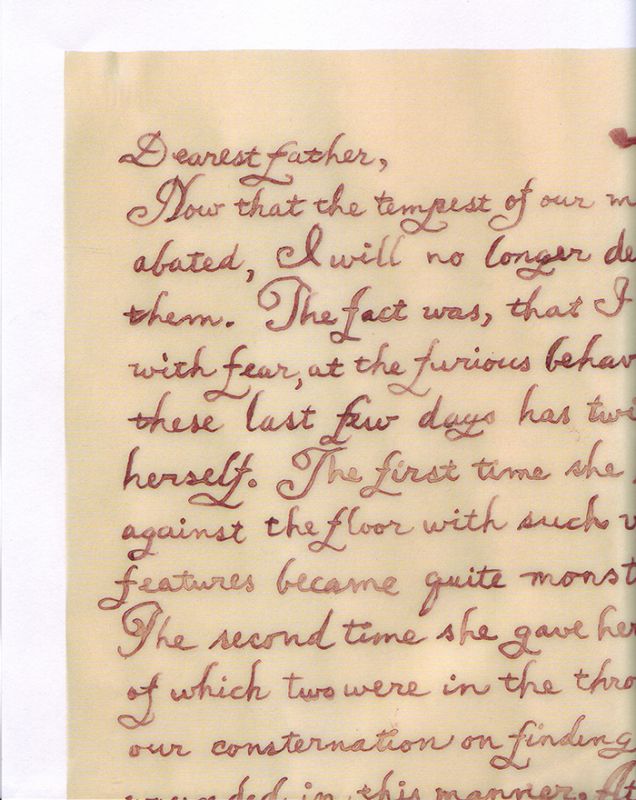 Dearest father,
Now that the tempest of our m
abated, I will no longer de
them. The fact was, that I
with fear, at the furious behav
these last few days has twi
herself. The first time she
against the floor with such v
features became quite monst
The second time she gave her
of which two were in the thro
our consternation on finding
wounded in this manner. At